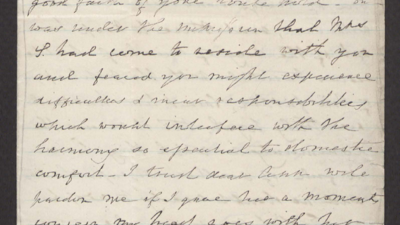 good faith of your
was under the impression that Mrs
S. had come to reside with you
and feared you might experience
difficulties & incur responsibilities
which would interfere with the
harmony so essential to domestic
comfort - I trust dear Ann will
pardon me if I gave her a moment
my heart goes with her